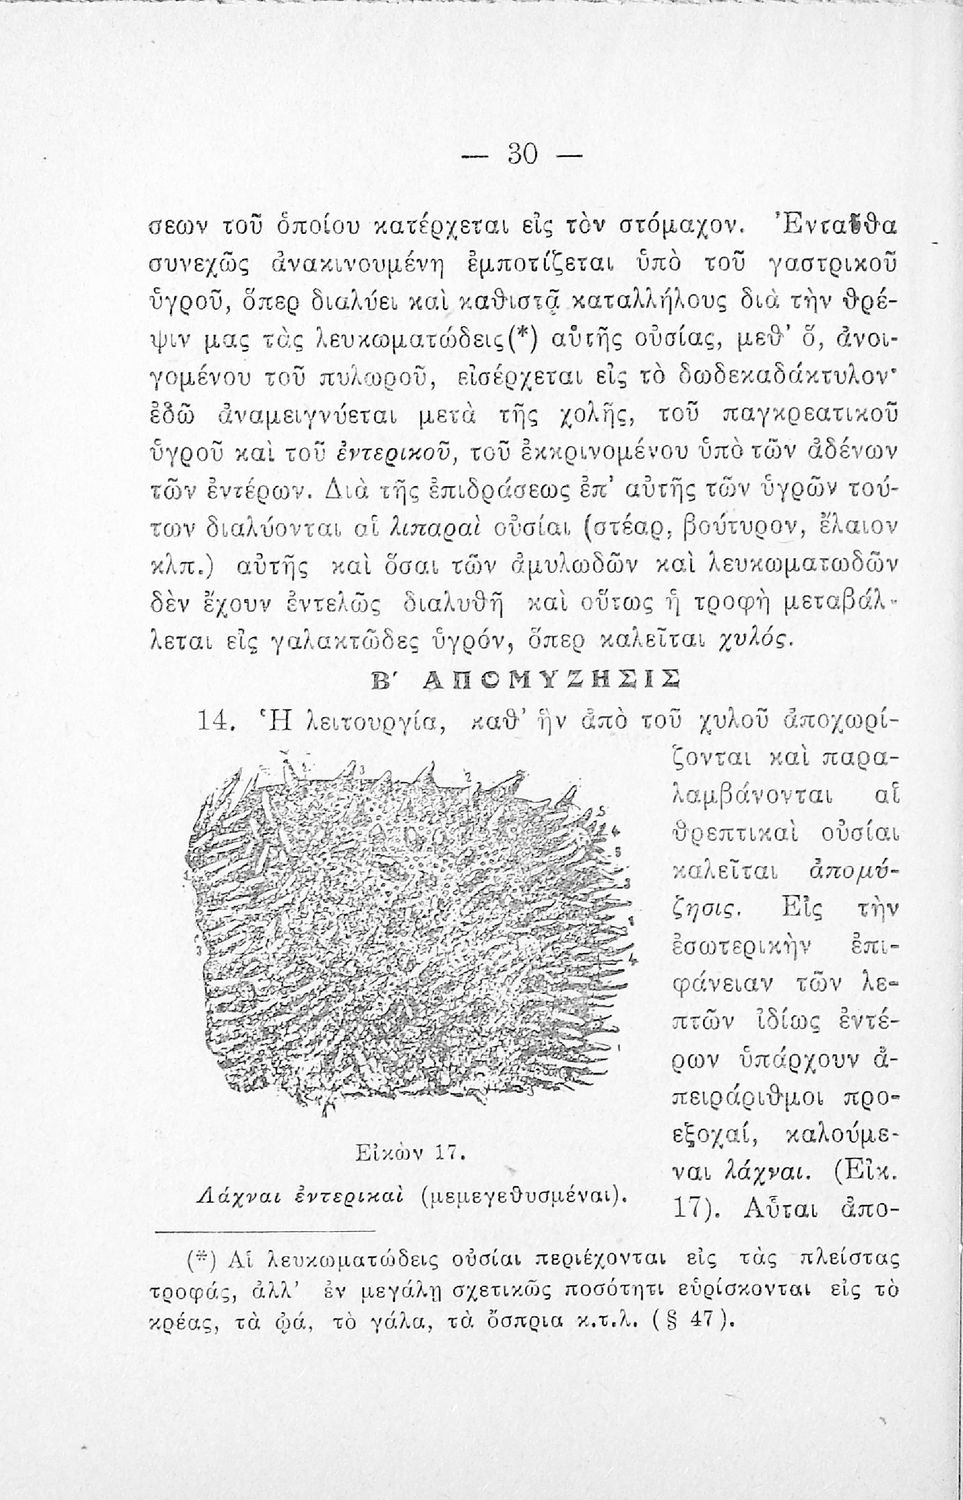 — 30 —
σεων τοῦ ὁποίου κατέρχεται εἰς τὸν στόμαχον. Ἐνταῦθα
συνεχῶς ἀνακινουμένη ἐμποτίζεται ὑπὸ τοῦ γαστρικοῦ
ὑγροῦ, ὅπερ διαλύει καὶ καθιστᾷ καταλλήλους διὰ τὴν θρέ-
ψιν μας τὰς λευκωματώδεις(*) αὐτῆς οὐσίας, μεθ' ὅ, ἀνοι-
γομένου τοῦ πυλωροῦ, εἰσέρχεται εἰς τὸ δωδεκαδάκτυλον·
ἐδῶ ἀναμειγνύεται μετὰ τῆς χολῆς, τοῦ παγκρεατικοῦ
ὑγροῦ καὶ τοῦ ἐντερικοῦ, τοῦ ἐκκρινομένου ὑπὸ τῶν ἀδένων
τῶν ἐντέρων. Διὰ τῆς ἐπιδράσεως ἐπ' αὐτῆς τῶν ὑγρῶν τού-
των διαλύονται αἱ λιπαραὶ οὐσίαι (στέαρ, βούτυρον, ἔλαιον
κλπ.) αὐτῆς καὶ ὅσαι τῶν ἀμυλωδῶν καὶ λευκωματωδῶν
δὲν ἔχουν ἐντελῶς διαλυθῆ καὶ οὕτως ἡ τροφὴ μεταβάλ-
λεται εἰς γαλακτῶδες ὑγρόν, ὅπερ καλεῖται χυλός.
Β' ΑΠΟΜΥΖΗΣΙΣ
14. Ἡ λειτουργία, καθ' ἣν ἀπὸ τοῦ χυλοῦ ἀποχωρί-
ζονται καὶ παρα-
λαμβάνονται αἱ
θρεπτικαὶ οὐσίαι
καλεῖται ἀπομύ-
ζησις. Εἰς τὴν
ἐσωτερικὴν ἐπι-
φάνειαν τῶν λε-
πτῶν ἰδίως ἐντέ-
ρων ὑπάρχουν ἀ-
πειράριθμοι προ-
εξοχαί, καλούμε-
ναι λάχναι. (Εἰκ.
17). Αὗται ἀπο-
Εἰκὼν 17.
Λάχναι ἐντερικαὶ (μεμεγεθυσμέναι).
(*) Αἱ λευκωματώδεις οὐσίαι περιέχονται εἰς τὰς πλείστας
τροφάς, ἀλλ' ἐν μεγάλῃ σχετικῶς ποσότητι εὑρίσκονται εἰς τὸ
κρέας, τὰ ᾠά, τὸ γάλα, τὰ ὄσπρια κ.τ.λ. (§ 47).